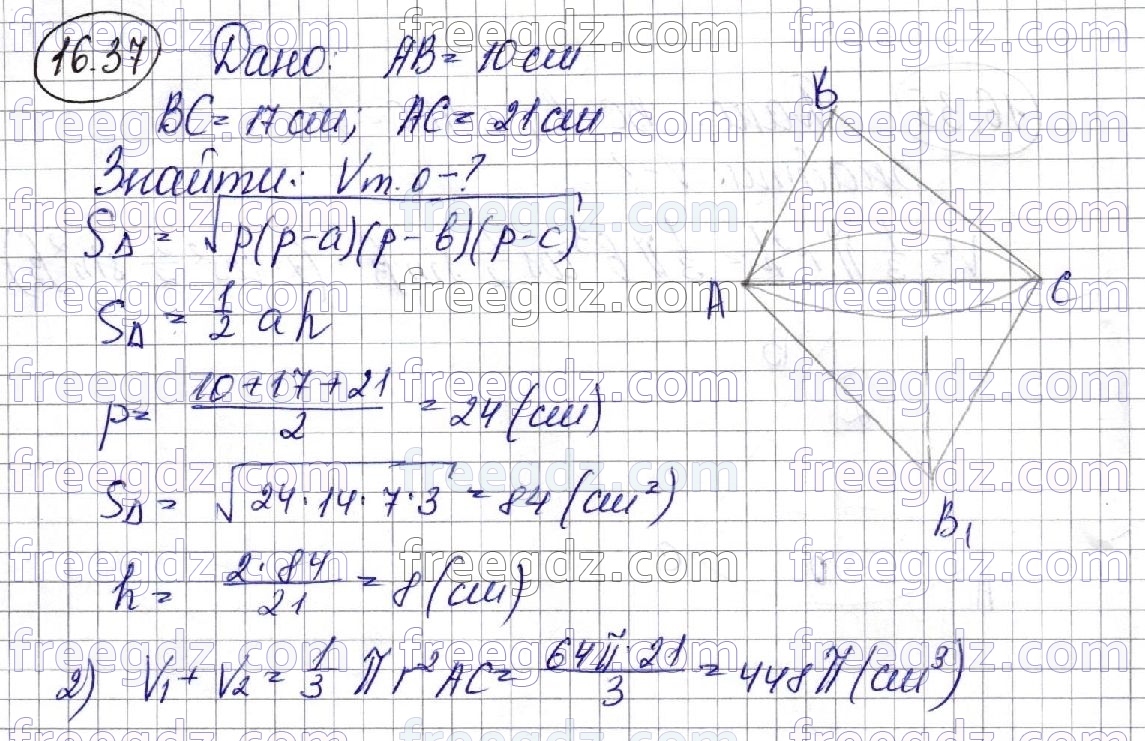 16.37 Дано: AB = 10 см
BC = 17 см; AC = 21 см
Знайти: Vт.о - ?
S∆ = √p(p-a)(p-в)(p-c)
S∆ = 1/2 ah
p = (10+17+21)/2 = 24 (см)
S∆ = √24·14·7·3 = 84 (см²)
h = (2·84)/21 = 8 (см)
2) V₁ + V₂ = 1/3 π r² AC = (64π·21)/3 = 448π (см³)
B
A
C
B₁
freegdz.com